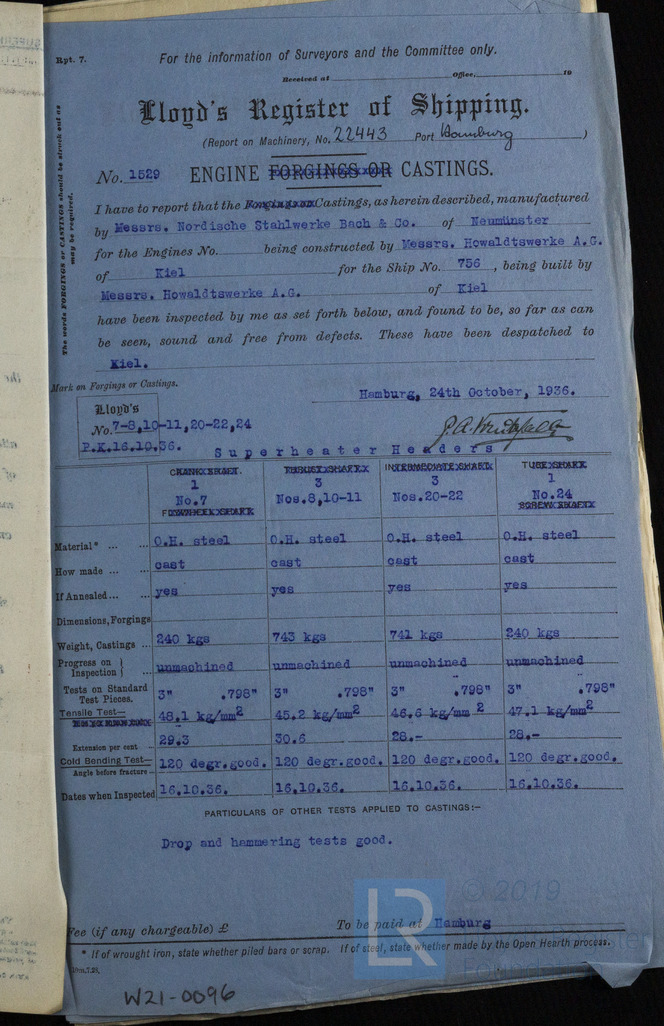 Rpt. 7.
For the information of Surveyors and the Committee only.
Received at Office, 19
Lloyd's Register of Shipping.
(Report on Machinery, No. 22443 Port Hamburg )
No. 1529 ENGINE FORGINGS OR CASTINGS.
The words FORGINGS or CASTINGS should be struck out as
may be required.
I have to report that the Forgings or Castings, as herein described, manufactured
by Messrs. Nordische Stahlwerke Bach & Co. of Neumünster
for the Engines No. being constructed by Messrs. Howaldtswerke A.G.
of Kiel for the Ship No. 756 , being built by
Messrs. Howaldtswerke A.G. of Kiel
have been inspected by me as set forth below, and found to be, so far as can
be seen, sound and free from defects. These have been despatched to
Kiel.
Mark on Forgings or Castings.
Hamburg, 24th October, 1936.
Lloyd's
No. 7-8,10-11,20-22,24
P.K.16.10.36.
Superheater Headers
CRANK SHAFT. THRUST SHAFT INTERMEDIATE SHAFT TUBE SHAFT
1 3 3 1
No.7 Nos.8,10-11 Nos.20-22 No.24
FLYWHEEL SHAFT SCREW SHAFT
Material* ... ... O.H. steel O.H. steel O.H. steel O.H. steel
How made ... ... cast cast cast cast
If Annealed ... ... yes yes yes yes
Dimensions, Forgings
Weight, Castings ... 240 kgs 743 kgs 741 kgs 240 kgs
Progress on
Inspection } ... unmachined unmachined unmachined unmachined
Tests on Standard
Test Pieces. 3" .798" 3" .798" 3" .798" 3" .798"
Tensile Test— 48,1 kg/mm2 45.2 kg/mm2 46,6 kg/mm2 47,1 kg/mm2
Extension per cent 29.3 30.6 28.- 28.-
Cold Bending Test— 120 degr.good. 120 degr.good. 120 degr.good. 120 degr.good.
Angle before fracture
Dates when Inspected 16.10.36. 16.10.36. 16.10.36. 16.10.36.
PARTICULARS OF OTHER TESTS APPLIED TO CASTINGS:—
Drop and hammering tests good.
LR
© 2019
Fee (if any chargeable) £ To be paid at Hamburg
* If of wrought iron, state whether piled bars or scrap. If of steel, state whether made by the Open Hearth process.
W21-0096